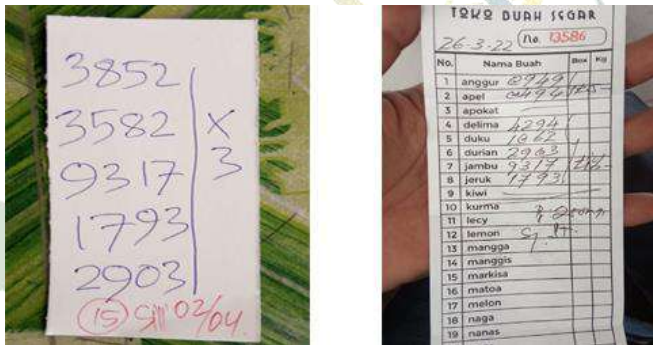 3852
3582
9317
1793
2903
X
3
15
02/04
TOKO BUAH SEGAR
26-3-22 No. 13586
No. Nama Buah Box Kg
1 anggur
2 apel
3 apokat
4 delima 4294
5 duku
6 durian 2963
7 jambu 9317
8 jeruk 1793
9 kiwi
10 kurma
11 lecy
12 lemon
13 mangga
14 manggis
15 markisa
16 matoa
17 melon
18 naga
19 nanas